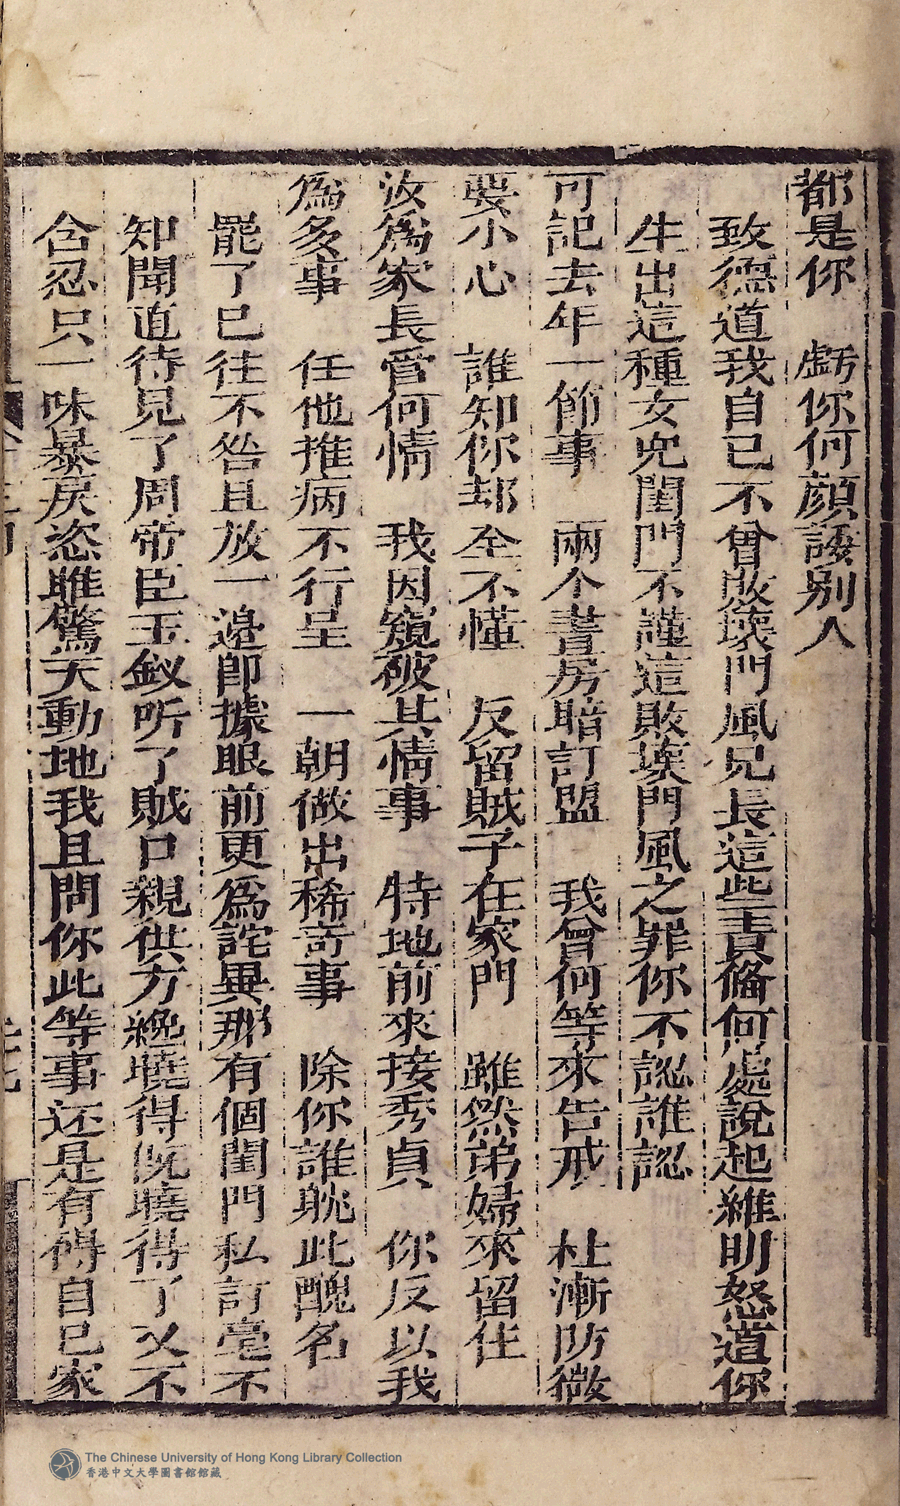 都是你　虧你何顏諉别人
致德道我自已不曾敗壞門風兄長這些責俻何處說起維明怒道你
生出這種女兒閨門不謹這敗壞門風之罪你不認誰認
可記去年一節事　兩个書房暗訂盟　我曾何等來告戒　杜漸防微
要小心　誰知你却全不懂　反留賊子在家門　雖然弟婦來留住
汝爲家長管何情　我因窺破其情事　特地前來接秀貞　你反以我
爲多事　任他推病不行呈　一朝做出稀竒事　除你誰躭此醜名
罷了已往不咎且放一邉卽據眼前更爲詫異那有個閨門私訂毫不
知聞直待見了周帝臣玉釵听了賊口親供方纔曉得旣曉得了又不
含忍只一味暴戾恣雎驚天動地我且問你此等事还是有碍自已家
The Chinese University of Hong Kong Library Collection
香港中文大學圖書館館藏